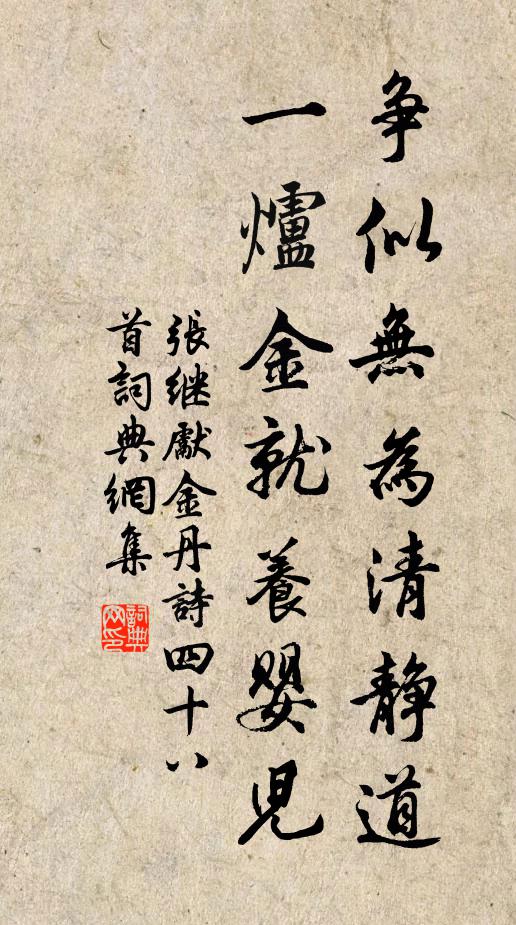 争似無為清静道
一爐金就養嬰児
張继獻金丹詩四十八
首詞典網集
詞典
网印